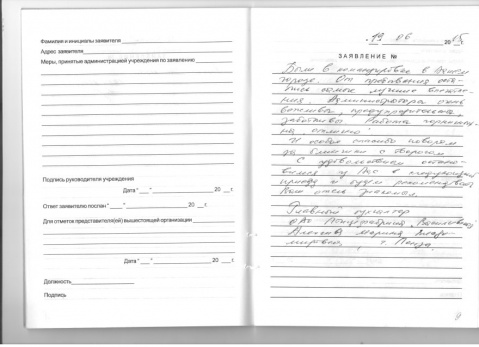 Фамилия и инициалы заявителя
Адрес заявителя
Меры, принятые администрацией учреждения по заявлению
Подпись руководителя учреждения
Дата " " 20 г.
Ответ заявителю послан " " 20 г.
Для отметок представителя(ей) вышестоящей организации
Дата " " 20 г.
Должность
Подпись
19 06 2015
ЗАЯВЛЕНИЕ №
Была в командировке в Вашем
городе. От пребывания оста-
лись самые лучшие впечатле-
ния. Администратора очень
вежливы, предупредительны,
заботливы. Работа
на отлично.
И особое спасибо поварам
за блинчики с творогом
С удовольствием остано-
вимся у Вас в следующий
приезд и будем рекомендовать
Ваш отель
Главный бухгалтер
ОАО
Марина Влади-
мировна, г. Пенза.